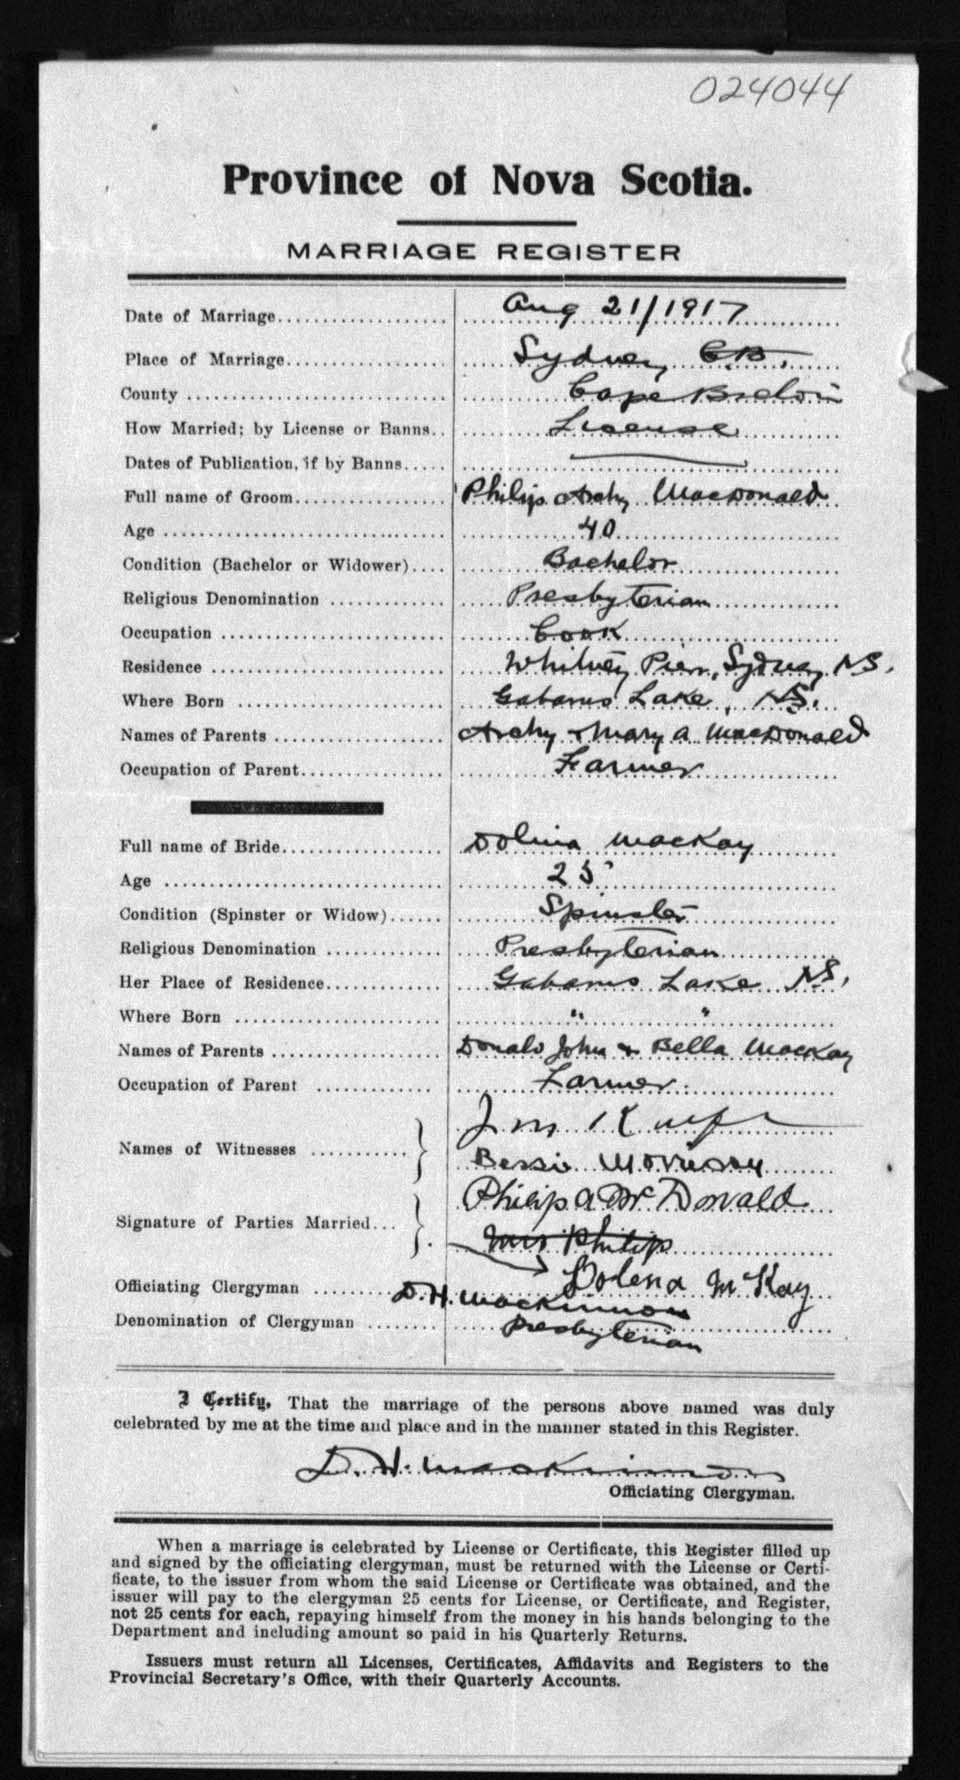 024044
Province of Nova Scotia.
MARRIAGE REGISTER
Date of Marriage.................... Aug 21/1917
Place of Marriage................... Sydney, C.B.
County .............................. Cape Breton
How Married; by License or Banns.. License
Dates of Publication, if by Banns.....
Full name of Groom................. Philip Archy MacDonald
Age ................................. 40
Condition (Bachelor or Widower).... Bachelor
Religious Denomination ............. Presbyterian
Occupation .......................... Cook
Residence ........................... Whitney Pier, Sydney NS.
Where Born ........................ Gabarus Lake, NS.
Names of Parents .................... Archy & Mary A MacDonald
Occupation of Parent................. Farmer
Full name of Bride................... Dolina MacKay
Age ................................. 25
Condition (Spinster or Widow)...... Spinster
Religious Denomination ............. Presbyterian
Her Place of Residence.............. Gabarus Lake NS.
Where Born ......................... " "
Names of Parents .................... Donald John & Bella MacKay
Occupation of Parent ............... Farmer
Names of Witnesses ...........
Bessie Morrison
Signature of Parties Married... Philip A Mc Donald
Mrs Philip
Dolena McKay
Officiating Clergyman ........ D. H. MacKinnon
Denomination of Clergyman ........ Presbyterian
I Certify, That the marriage of the persons above named was duly
celebrated by me at the time and place and in the manner stated in this Register.
D. H. MacKinnon
Officiating Clergyman.
When a marriage is celebrated by License or Certificate, this Register filled up
and signed by the officiating clergyman, must be returned with the License or Certi-
ficate, to the issuer from whom the said License or Certificate was obtained, and the
issuer will pay to the clergyman 25 cents for License, or Certificate, and Register,
not 25 cents for each, repaying himself from the money in his hands belonging to the
Department and including amount so paid in his Quarterly Returns.
Issuers must return all Licenses, Certificates, Affidavits and Registers to the
Provincial Secretary's Office, with their Quarterly Accounts.